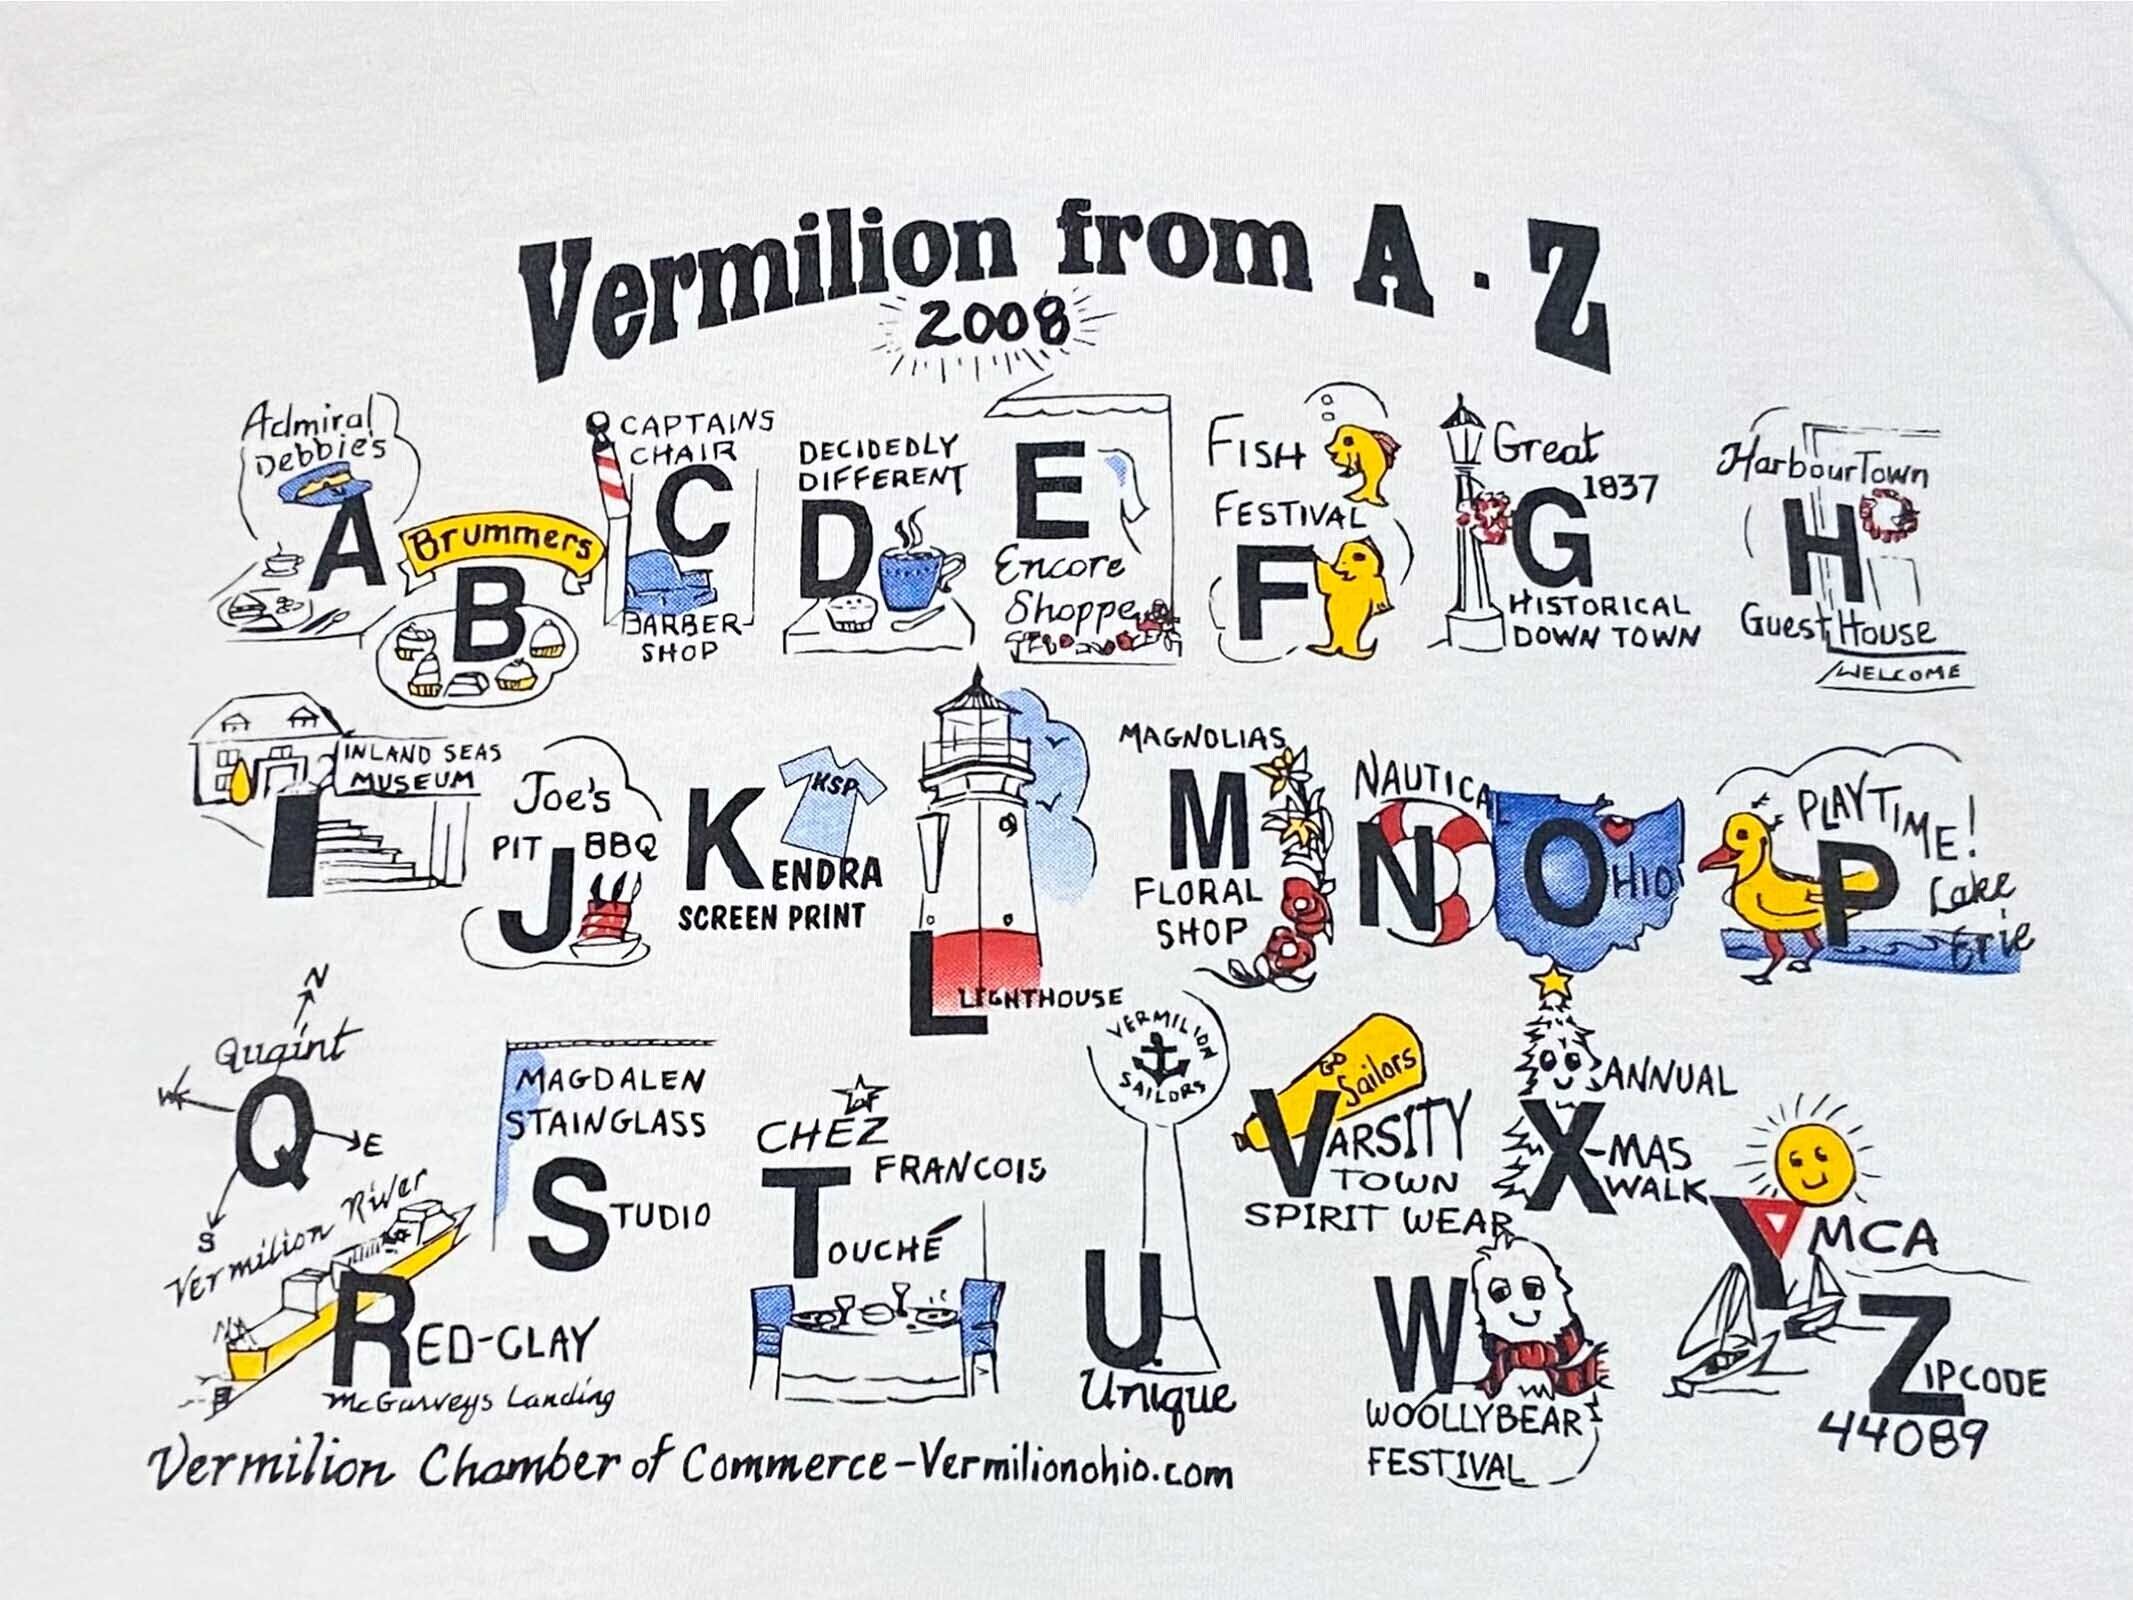 Vermilion from A - Z
2008
Admiral
Debbie's
A
Brummers
B
CAPTAINS
CHAIR
C
BARBER
SHOP
DECIDEDLY
DIFFERENT
D
E
Encore
Shoppe
FISH
FESTIVAL
F
Great
1837
G
HISTORICAL
DOWN TOWN
HarbourTown
H
Guest House
WELCOME
INLAND SEAS
MUSEUM
I
Joe's
PIT BBQ
J
KSP
KENDRA
SCREEN PRINT
LIGHTHOUSE
MAGNOLIAS
M
FLORAL
SHOP
NAUTICAL
N
OHIO
PLAYTIME!
P
Lake
Erie
N
Quaint
W
Q
E
S
Vermilion River
RED-CLAY
McGarveys Landing
MAGDALEN
STAINGLASS
STUDIO
CHEZ
FRANCOIS
TOUCHÉ
VERMILION
SAILORS
U
Unique
GO
Sailors
VARSITY
TOWN
SPIRIT WEAR
ANNUAL
X-MAS
WALK
W
WOOLLYBEAR
FESTIVAL
YMCA
ZIPCODE
44089
Vermilion Chamber of Commerce-Vermilionohio.com